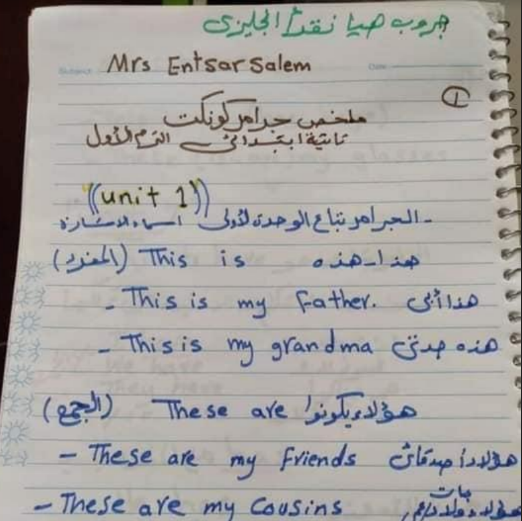 جروب هيا نقرأ انجليزى
Subject: Mrs Entsar Salem Date:
①
ملخص جرامر كونكت
تانية ابتدائى الترم الأول
((unit 1))
- الجرامر بتاع الوحدة الأولى أسماء الاشارة
هذا - هذه This is (المفرد)
- This is my Father. هذا أبى
- This is my grandma هذه جدتى
هؤلاء يكونوا These are (الجمع)
- These are my Friends هؤلاء أصدقائى
- These are my Cousins هؤلاء